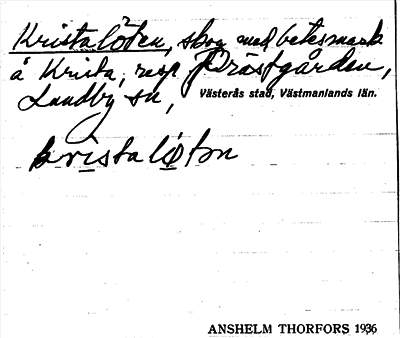 Kristalöten, skog med betesmark
å Krista, resp. Prästgården,
Lundby sn, Västerås stad, Västmanlands län.
kristalo̲ton
ANSHELM THORFORS 1936